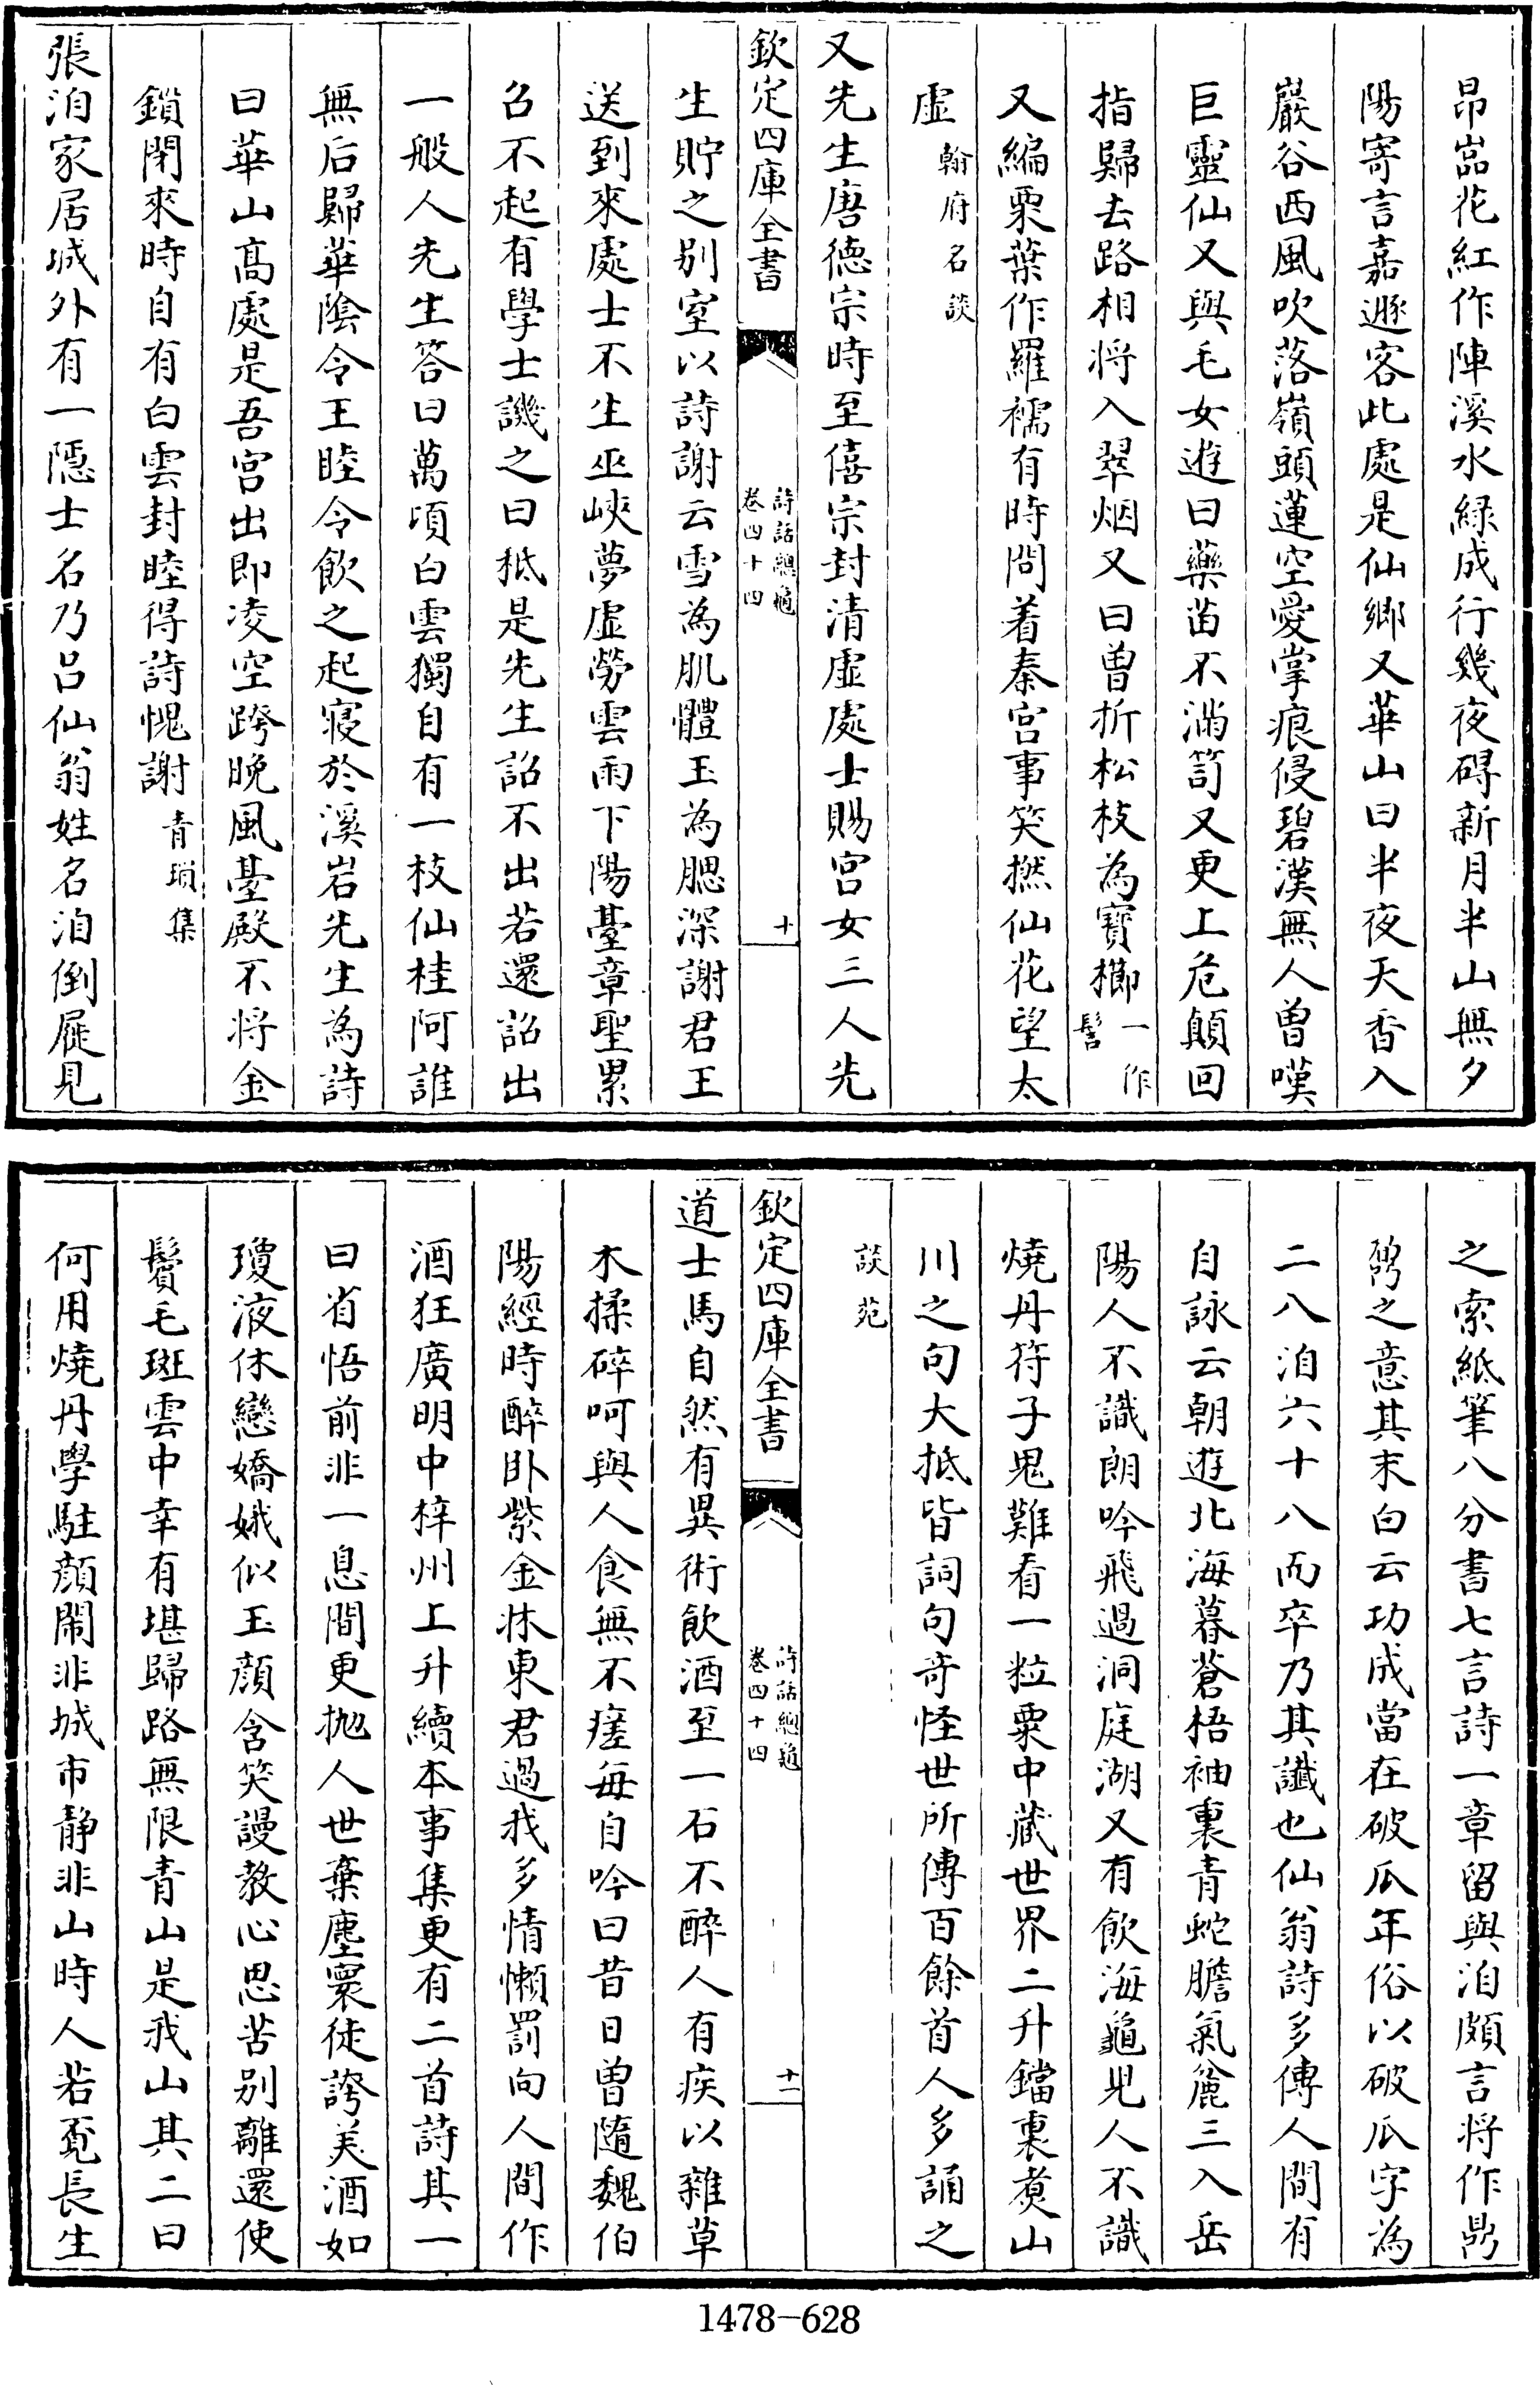 昂嵓花紅作陣溪水緑成行幾夜碍新月半山無夕
陽寄言嘉遯客此處是仙鄉又華山曰半夜天香入
巖谷西風吹落嶺頭蓮空愛掌痕侵碧漢無人曽嘆
巨靈仙又與毛女遊曰藥苗不滿笥又更上危顛回
指歸去路相将入翠烟又曰曽折松枝為寳櫛一作髻
又編栗葉作羅襦有時問着秦宫事笑撚仙花望太
虛翰府名談
又先生唐徳宗時至僖宗封清虛處士賜宫女三人先
欽定四庫全書
詩話總龜
卷四十四
十
生貯之别室以詩謝云雪為肌體玉為腮深謝君王
送到來處士不生巫峽夢虛勞雲雨下陽臺章聖累
召不起有學士譏之曰秪是先生詔不出若還詔出
一般人先生答曰萬頃白雲獨自有一枝仙桂阿誰
無后歸華隂令王睦令飲之起寢於溪岩先生為詩
曰華山髙處是吾宫出即凌空跨晚風臺殿不将金
鎖閉來時自有白雲封睦得詩愧謝青瑣集
張洎家居城外有一隱士名乃吕仙翁姓名洎倒屣見
之索紙筆八分書七言詩一章留與洎頗言将作鼎
鼐之意其末白云功成當在破瓜年俗以破瓜字為
二八洎六十八而卒乃其讖也仙翁詩多傳人間有
自詠云朝遊北海暮蒼梧袖裏青蛇膽氣麄三入岳
陽人不識朗吟飛過洞庭湖又有飲海龜児人不識
燒丹符子鬼難看一粒粟中藏世界二升鐺裏煑山
川之句大抵皆詞句竒怪世所傳百餘首人多誦之
談苑
欽定四庫全書
詩話總龜
卷四十四
十一
道士馬自然有異術飲酒至一石不醉人有疾以雜草
木揉碎呵與人食無不瘥每自吟曰昔日曽隨魏伯
陽經時醉卧紫金牀東君過我多情懶罰向人間作
酒狂廣明中梓州上升續本事集更有二首詩其一
曰省悟前非一息間更抛人世棄塵寰徒誇美酒如
瓊液休戀嬌娥似玉顔含笑謾教心思苦别離還使
鬢毛斑雲中幸有堪歸路無限青山是我山其二曰
何用燒丹學駐顔鬧非城市静非山時人若覔長生
1478-628